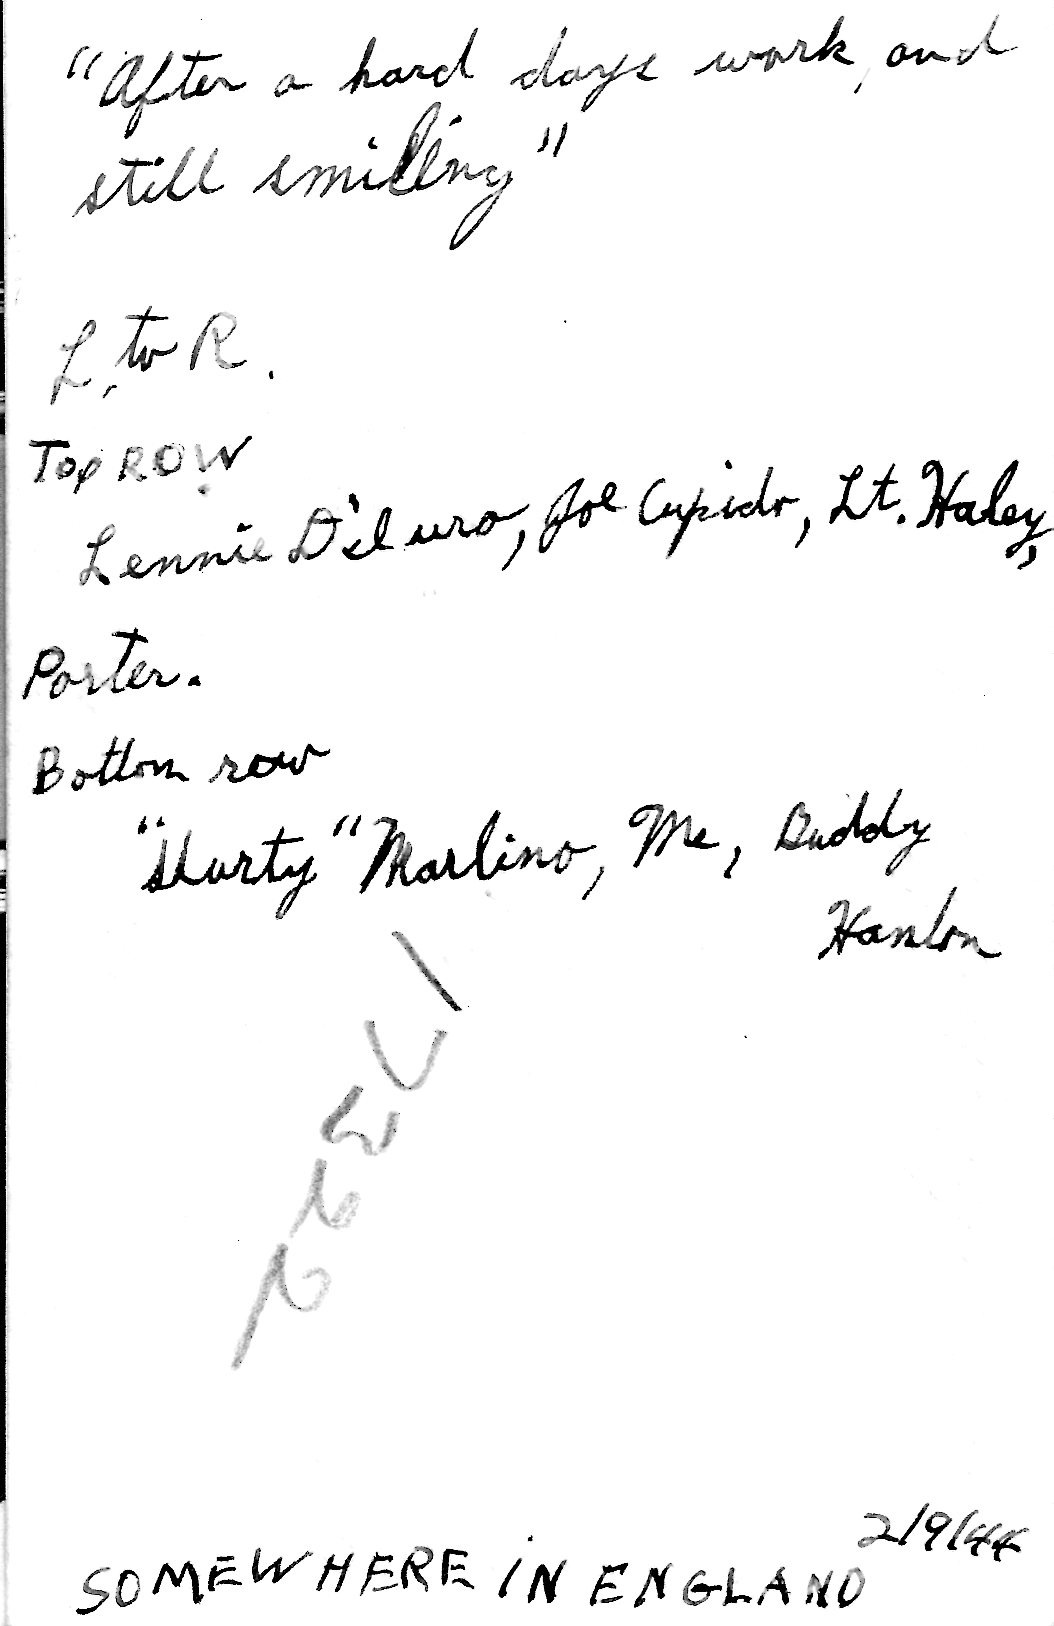 "After a hard days work, and
still smiling"
L, to R.
Top ROW
Lennie Joe Cupido, Lt. Haley,
Porter.
Bottom row
Marlino, Me, Buddy
Hanlon
2/9/44
SOMEWHERE IN ENGLAND